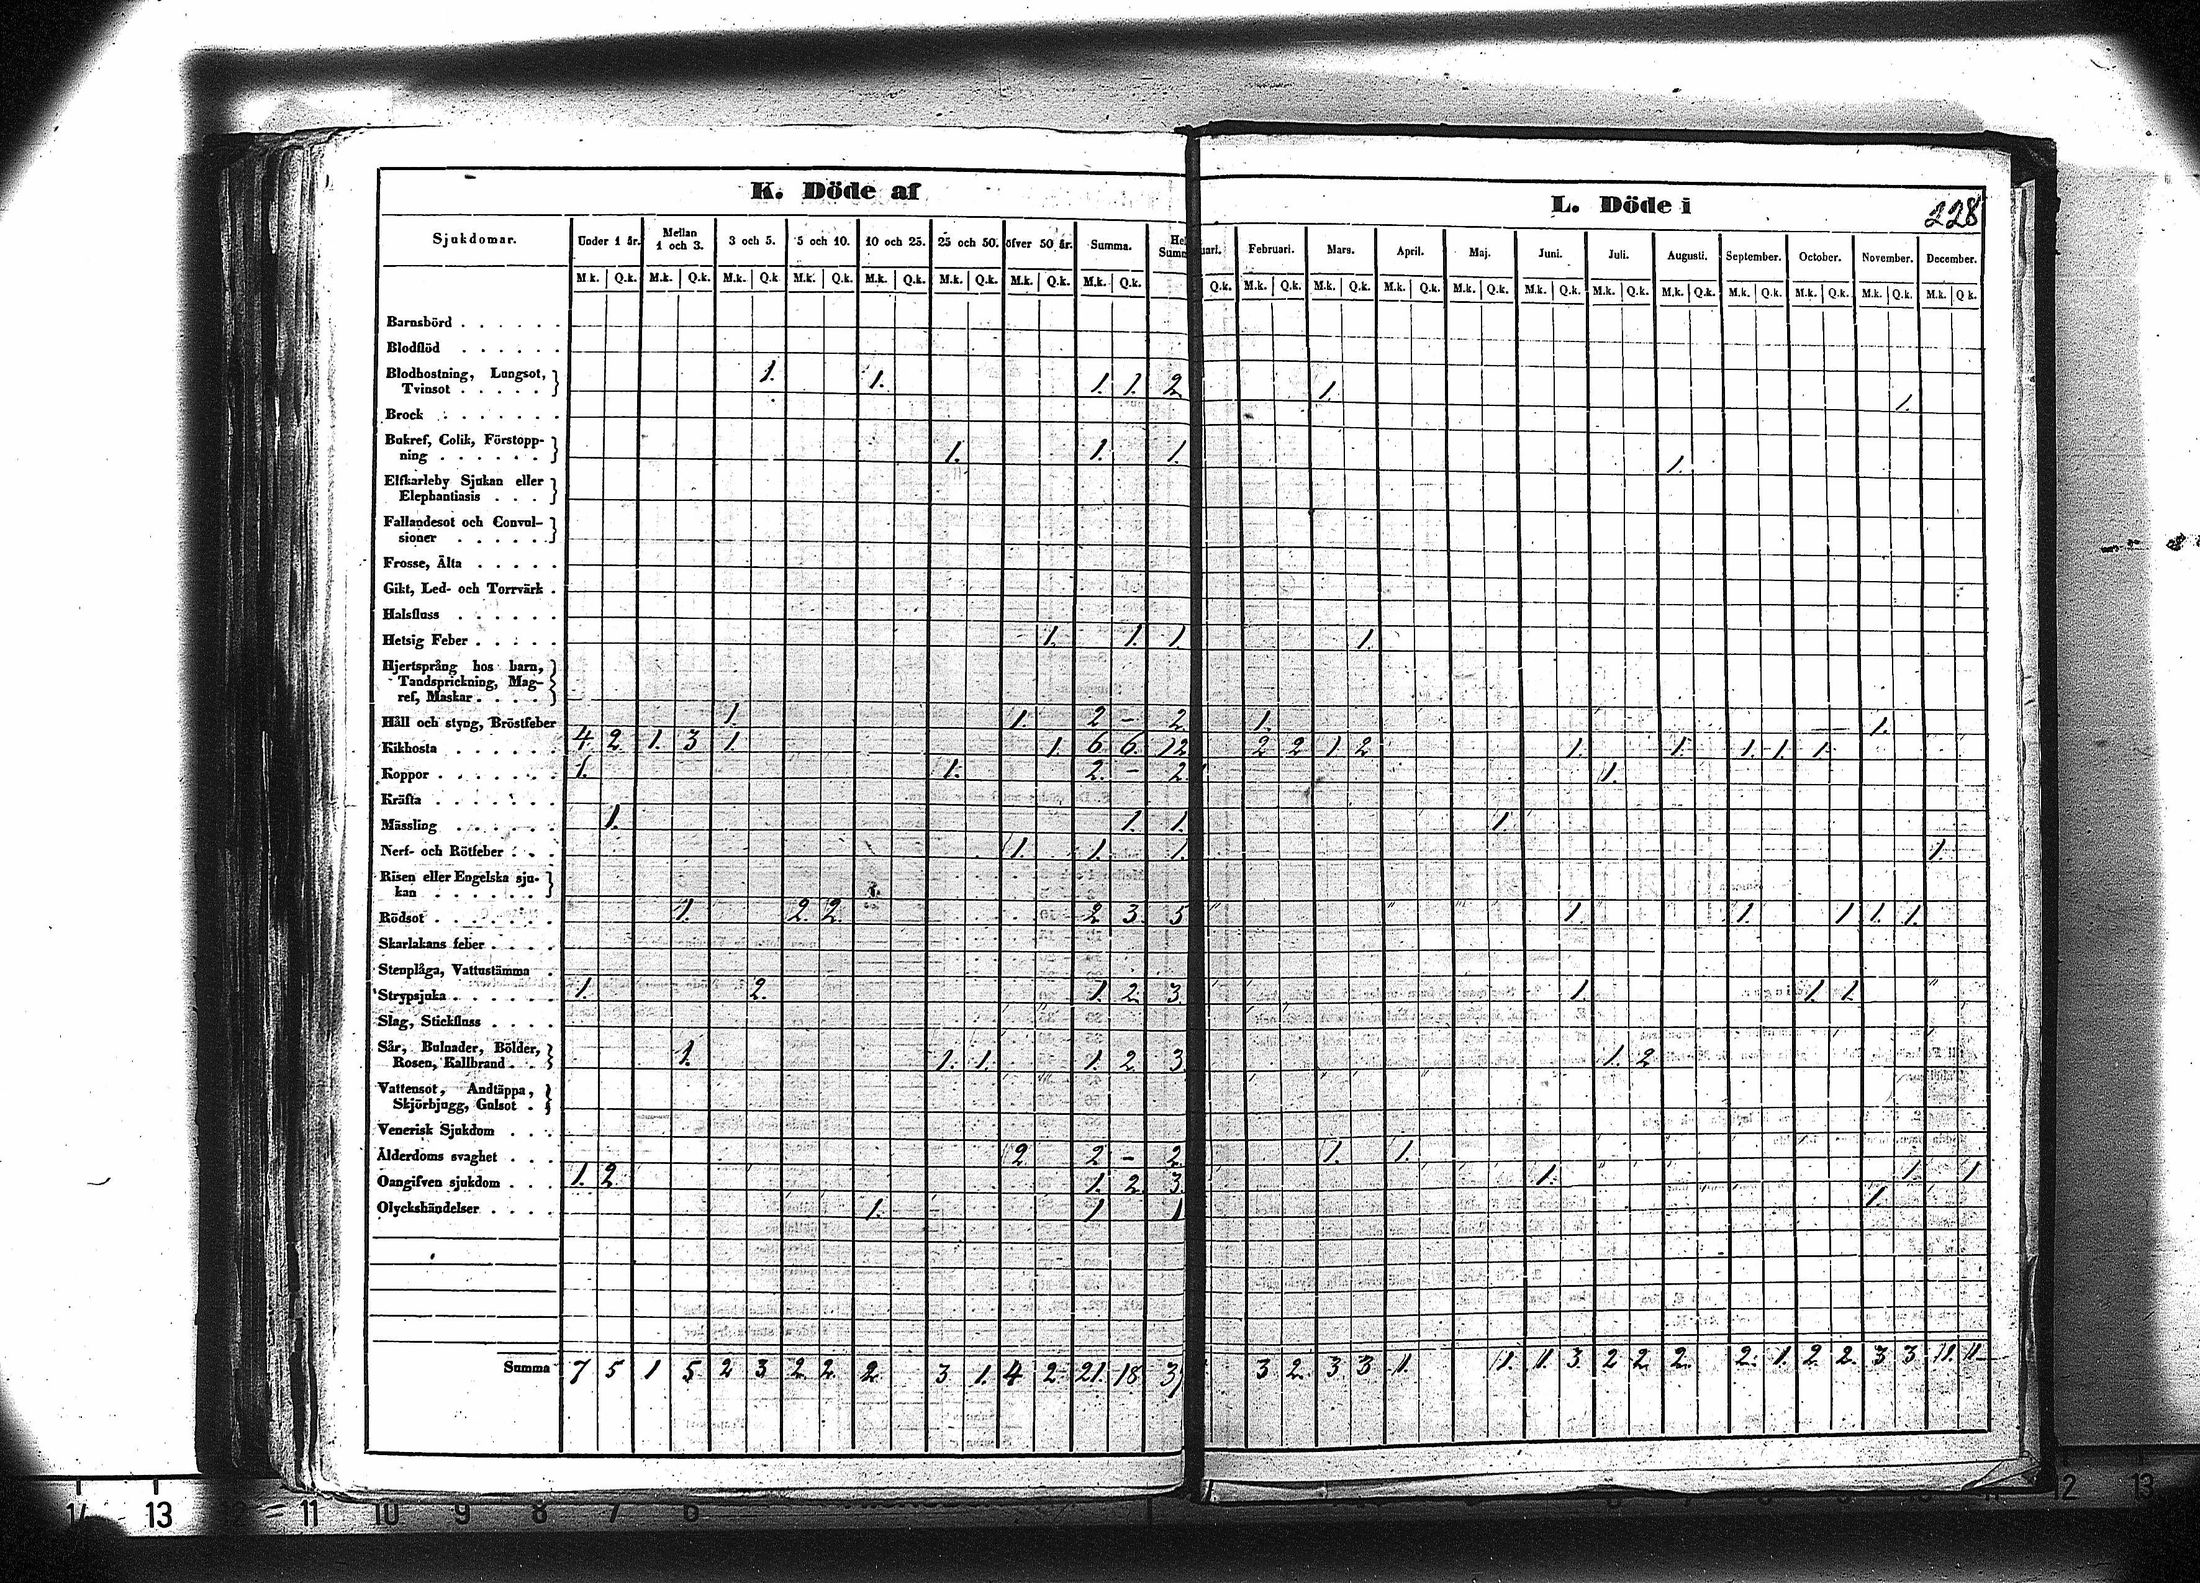 K. Döde af
L. Döde i
228
Sjukdomar. Under 1 år. Mellan 1 och 3. 3 och 5. 5 och 10. 10 och 25. 25 och 50. öfver 50 år. Summa. Februari. Mars. April. Maj. Juni. Juli. Augusti. September. October. November. December.
M.k. Q.k. M.k. Q.k. M.k. Q.k M.k. Q.k. M.k. Q.k. M.k. Q.k. M.k. Q.k. M.k. Q.k. Q.k. M.k. Q.k. M.k. Q.k. M.k. Q.k. M.k. Q.k. M.k. Q.k. M.k. Q.k. M.k. Q.k. M.k. Q.k. M.k. Q.k. M.k. Q.k. M.k. Q k.
Barnsbörd
Blodflöd
Blodhostning, Lungsot,
Tvinsot 1. 1. 1. 1. 2 1. 1.
Brock
Bukref, Colik, Förstopp-
ning 1. 1. 1. 1.
Elfkarleby Sjukan eller
Elephantiasis
Fallandesot och Convul-
sioner
Frosse, Älta
Gikt, Led- och Torrvärk
Halsfluss
Hetsig Feber 1. 1. 1. 1.
Hjertsprång hos barn,
Tandsprickning, Mag-
ref, Maskar
Håll och styng, Bröstfeber 1. 1. 2 - 2 1. 1.
Kikhosta 4 2 1. 3 1. 1. 6 6. 12 2 2 1 2 1. 1. 1. 1. 1.
Koppor 1. 1. 2. - 2 1.
Kräfta
Mässling 1. 1. 1. 1.
Nerf- och Rötfeber 1. 1. 1. 1
Risen eller Engelska sju-
kan
Rödsot 1. 2 2 2 3. 5 1. 1. 1 1. 1.
Skarlakans feber
Stenplåga, Vattustämma
Strypsjuka 1. 2. 1. 2. 3 1. 1. 1.
Slag, Stickfluss
Sår, Bulnader, Bölder,
Rosen, Kallbrand 1. 1. 1. 1. 2. 3 1. 2
Vattensot, Andtäppa,
Skjörbjugg, Gulsot
Venerisk Sjukdom
Ålderdoms svaghet 2 2 - 2 1. 1.
Oangifven sjukdom 1. 2 1. 2. 3. 1. 1. 1
Olyckshändelser 1. 1 1 1.
Summa 7 5 1 5. 2 3 2 2. 2. 3 1. 4 2 21. 18 3 2. 3 3 1. 1. 1. 3. 2 2. 2. 2. 1. 2. 2. 3 3 1. 1.
14 13 11 10 9 8 7 6 12 13